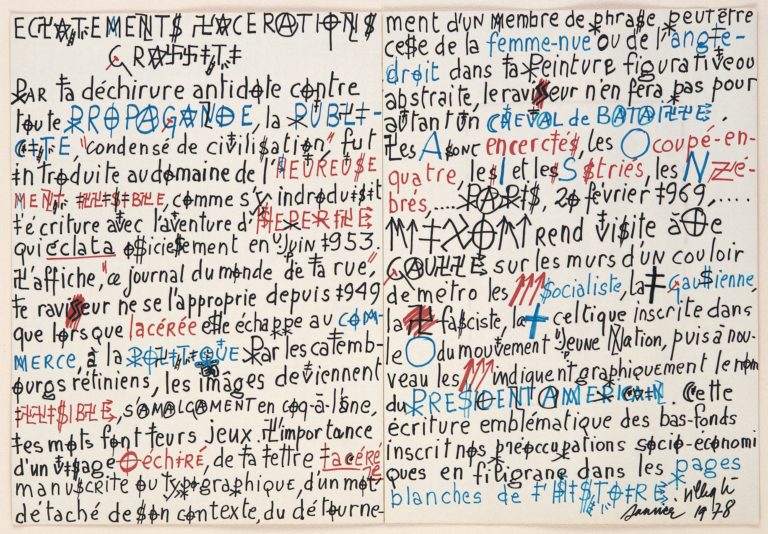 ECLATEMENTS LACERATIONS
GRAFFITI
PAR la déchirure antidote contre
toute PROPAGANDE, la PUBLI-
CITÉ, "condensé de civilisation," fut
introduite au domaine de l'HEUREUSE
MENT ILLISIBLE, comme s'y indroduisit
l'écriture avec l'aventure d'HEPERILE
qui éclata officiellement en Juin 1953.
L'affiche, "ce journal du monde de la rue,"
le ravisseur ne se l'approprie depuis 1949
que lorsque lacérée elle échappe au COM-
MERCE, à la POLITIQUE. Par les catemb-
ourgs rétiniens, les images deviennent
ILLISIBLES, s'AMALGAMENT en coq-à-l'âne,
les mots font leurs jeux. L'importance
d'un visage déchiré, de la lettre lacérée
manuscrite ou typographique, d'un mot
détaché de son contexte, du détourne-
ment d'un membre de phrase peut être
celle de la femme-nue ou de l'angle-
droit dans la Peinture figurative ou
abstraite, le ravisseur n'en fera pas pour
autant un CHEVAL de BATAILLE.
Les A sont encerclés, les O coupé-en-
quatre, les I et les S striés, les N Zé-
brés,.... PARIS, 20 février 1969,....
NIXON rend visite à De
GAULLE sur les murs d'un couloir
de métro les Socialiste, la ‡ gaullienne,
la 卐 fasciste, la celtique inscrite dans
le O du mouvement "Jeune Nation, puis à nou-
veau les indiquent graphiquement le nom
du PRESIDENT AMERICAIN. Cette
écriture emblématique des bas-fonds
inscrit nos préoccupations socio-economi
ques en filigrane dans les pages
blanches de l'HISTOIRE. Villeglé
Janvier 1978